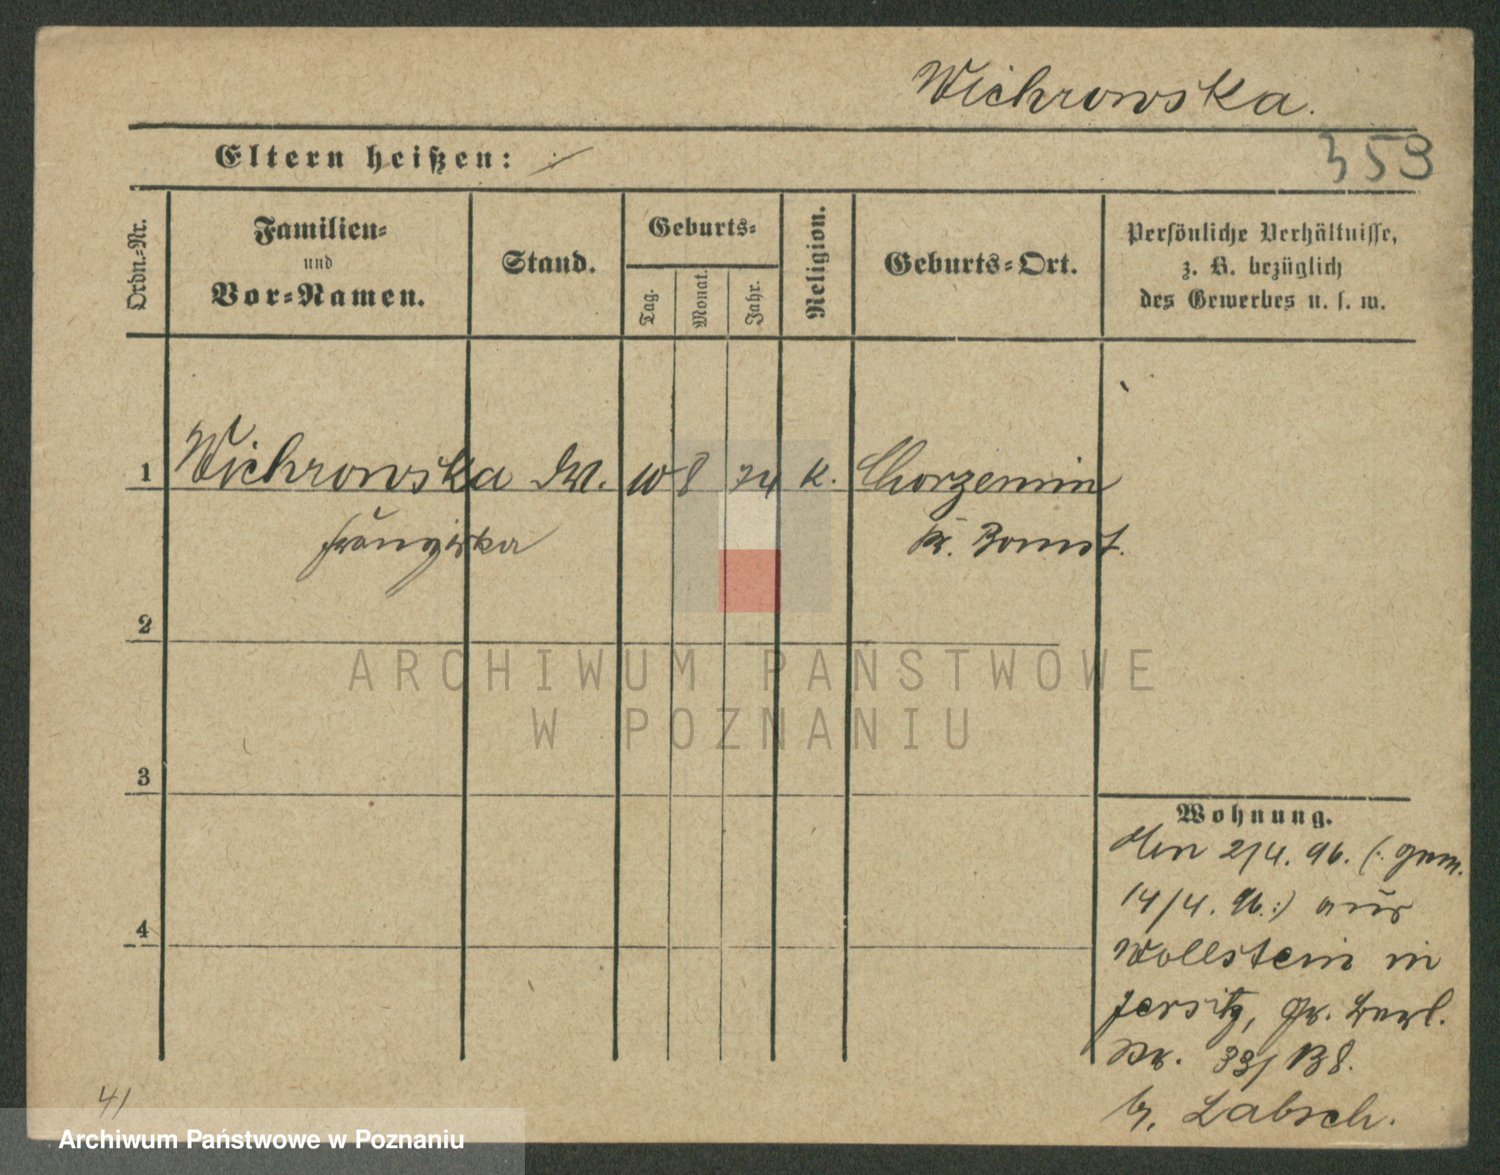 Wichrowska.
353
Eltern heißen:
Ordn.-Nr.
Familien-
und
Vor-Namen.
Stand.
Geburts-
Tag.
Monat.
Jahr.
Religion.
Geburts-Ort.
Persönliche Verhältnisse,
z. B. bezüglich
des Gewerbes u. s. w.
1 Wichrowska 10 8 74 k. Chorzemin
Franziska Kr. Bomst.
2
ARCHIWUM PAŃSTWOWE
W POZNANIU
3
Wohnung.
Den 2/4. 96. (: gem.
14/4. 96.:) aus
4
Wollstein in
Jersitz, Gr. Berl.
Str. 33/
b. Labsch.
41
Archiwum Państwowe w Poznaniu